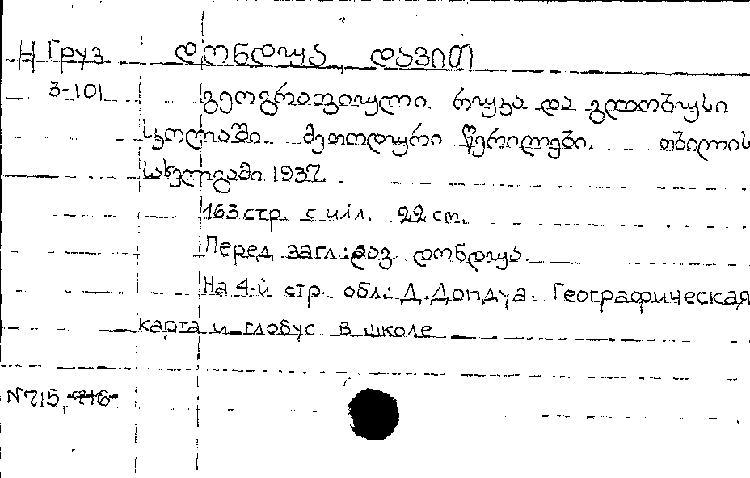 Н Груз დონდუა დავით
3-101 გეოგრაფიული რუკა და გლობუსი
სკოლაში. მეთოდური წერილები. თბილის
სახელგამი 1937
163 стр. с илл. 22 см.
Перед загл: დავ. დონდუა
На 4-й стр. обл: Д. Дондуа. Географическая
карта и глобус в школе
N 715, 716